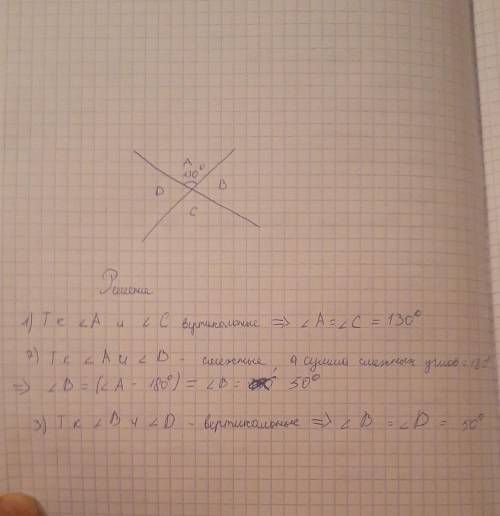 A
130°
D
B
C
Решение
1) Т к ∠A и ∠C вертикальные => ∠A = ∠C = 130°
2) Т к ∠A и ∠B - смежные, а сумма смежных углов = 180°
=> ∠B = (∠A - 180°) = ∠B = 50°
3) Т к ∠B и ∠D - вертикальные => ∠B = ∠D = 50°